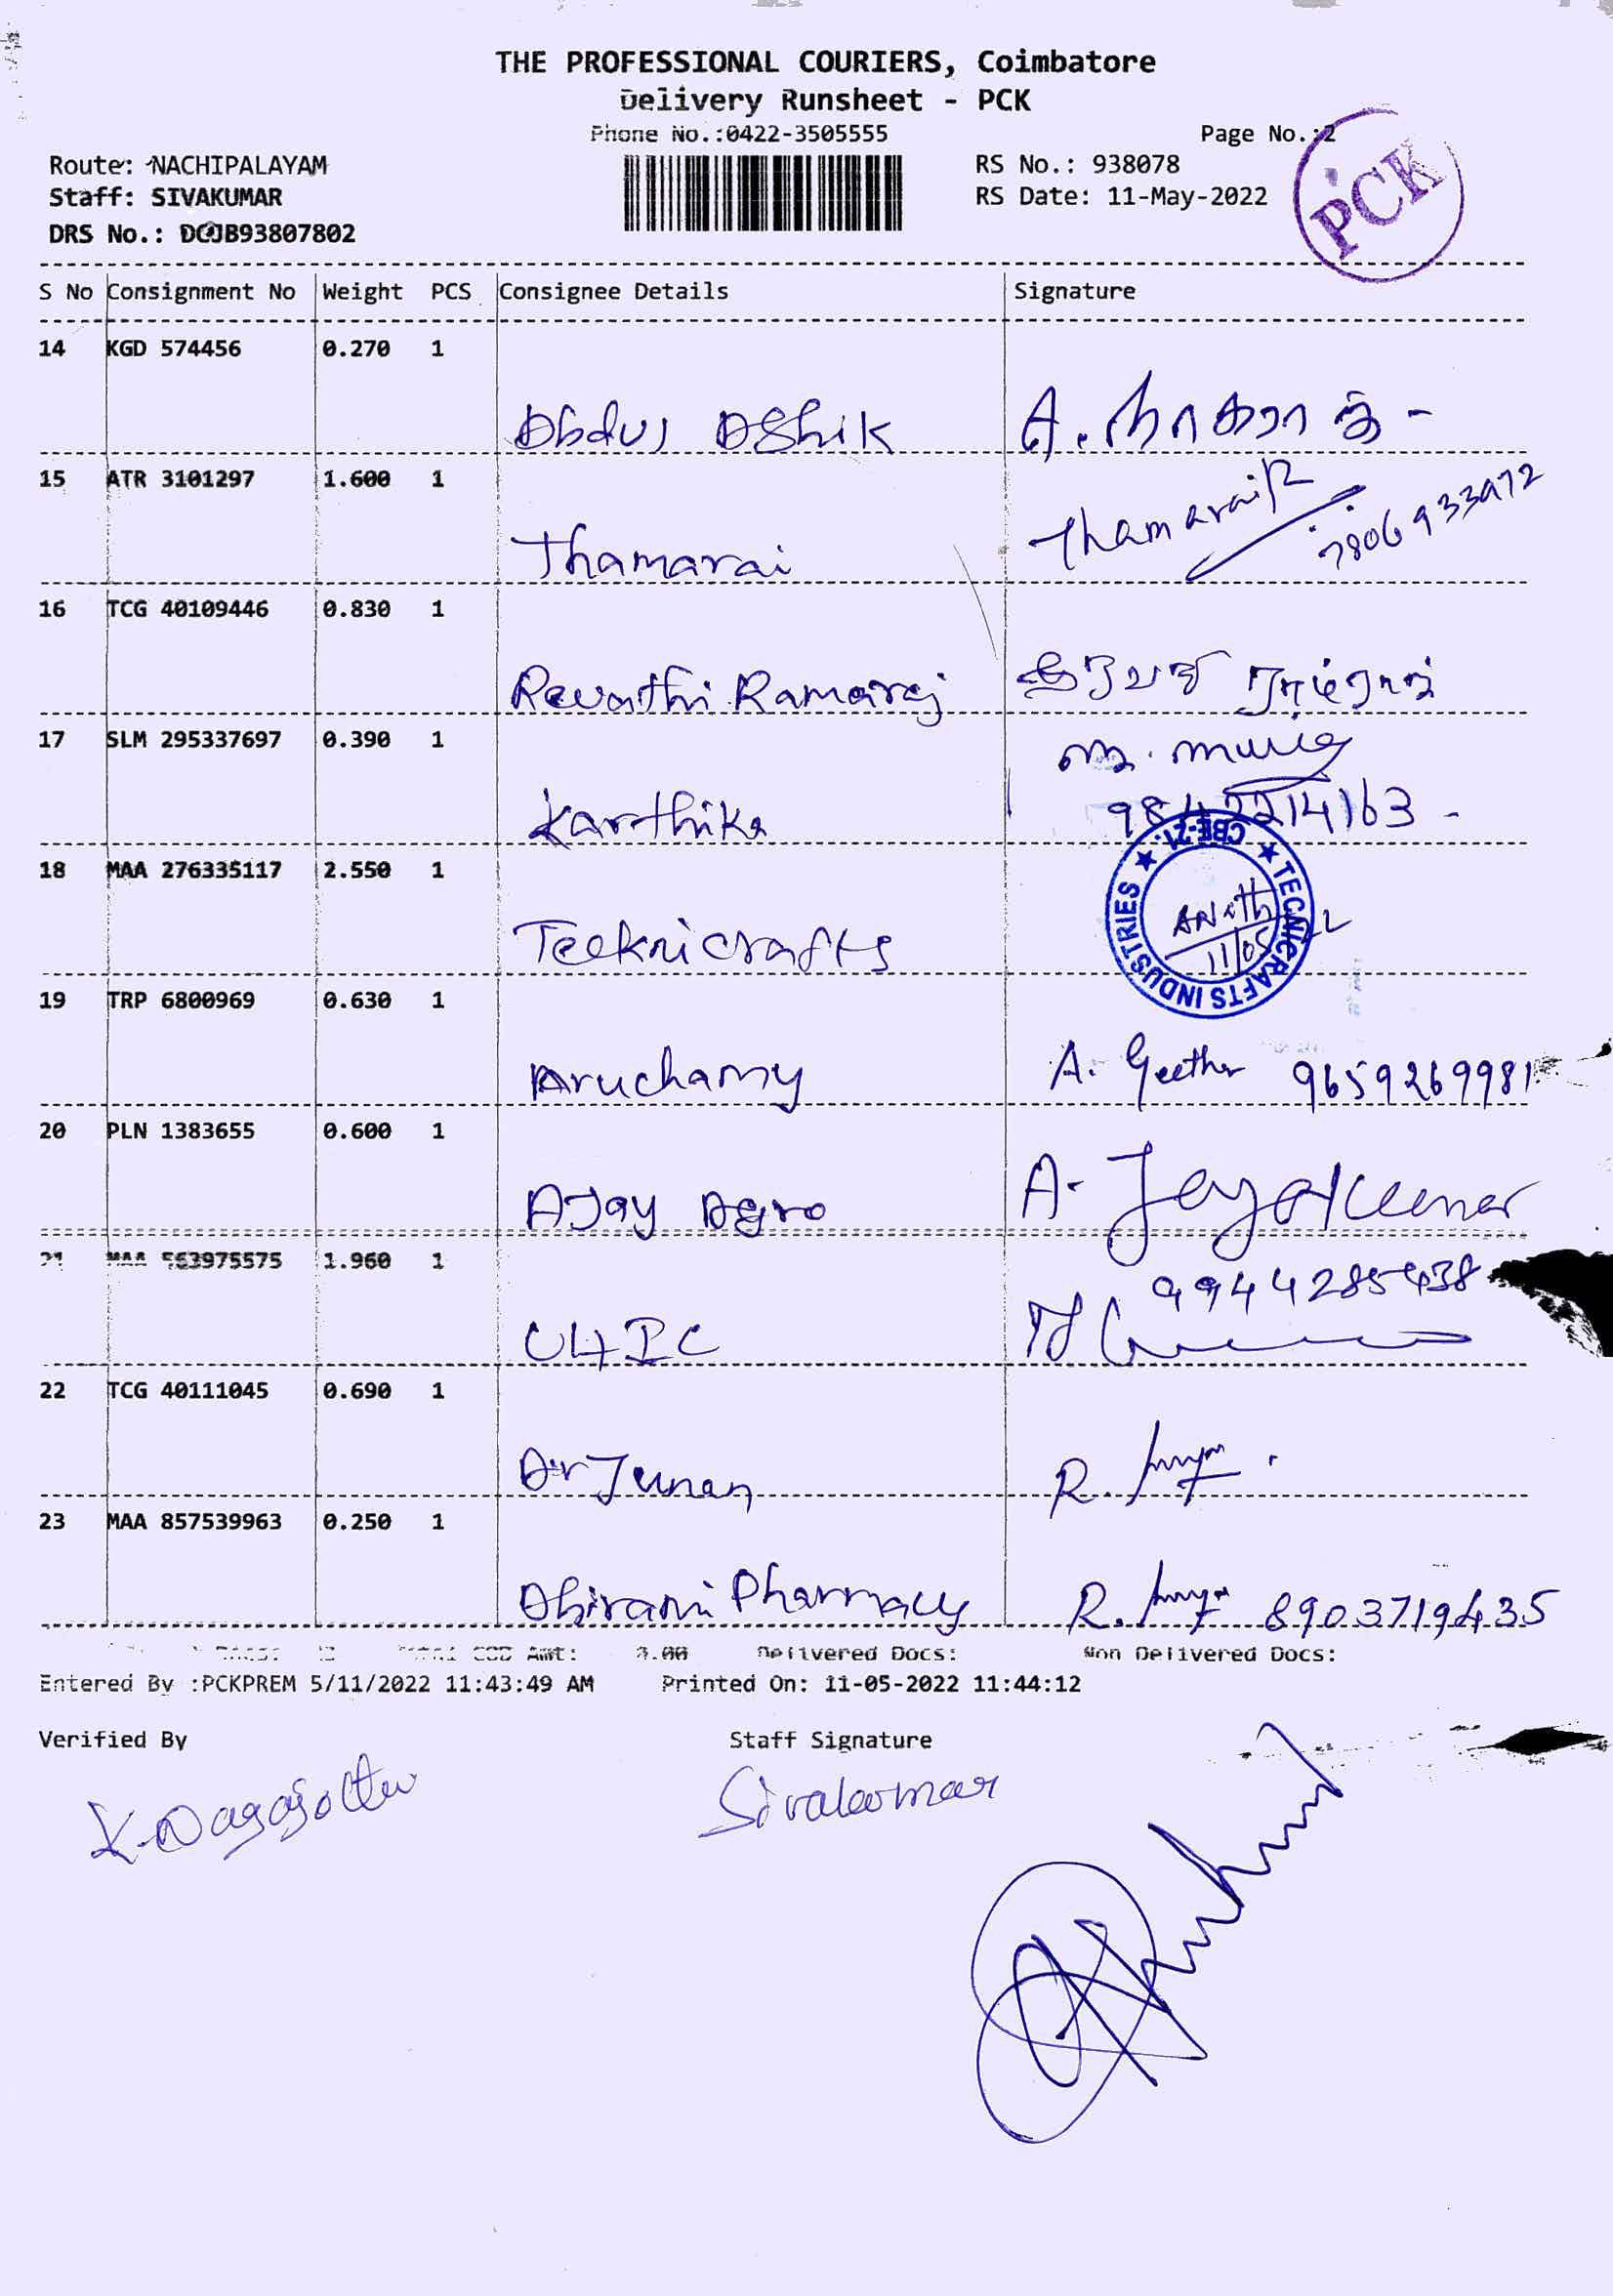 THE PROFESSIONAL COURIERS, Coimbatore
Delivery Runsheet - PCK
Phone No.:0422-3505555
Page No.:2
PCK
Route: NACHIPALAYAM
RS No.: 938078
Staff: SIVAKUMAR
RS Date: 11-May-2022
DRS No.: DCJB93807802
S No Consignment No Weight PCS Consignee Details Signature
14 KGD 574456 0.270 1
Abdul Ashik A. நாகராஜ் -
15 ATR 3101297 1.600 1
Thamarai Thamarai 7806933972
16 TCG 40109446 0.830 1
Revathi Ramaraj
17 SLM 295337697 0.390 1
Karthika 9842214163 -
18 MAA 276335117 2.550 1
Teeknicrafts
TECNICRAFTS INDUSTRIES ★ CBE-21. ★
11/05/22
19 TRP 6800969 0.630 1
Aruchamy A. Geetha 9659269981
20 PLN 1383655 0.600 1
AJay Agro A. Jayakumar
21 MAA 563975575 1.960 1
9944285438
22 TCG 40111045 0.690 1
ArJunan R.
23 MAA 857539963 0.250 1
Abirami Pharmacy R. 8903719435
COD Amt: 0.00 Delivered Docs: Non Delivered Docs:
Entered By :PCKPREM 5/11/2022 11:43:49 AM Printed On: 11-05-2022 11:44:12
Verified By Staff Signature
Sivakumar